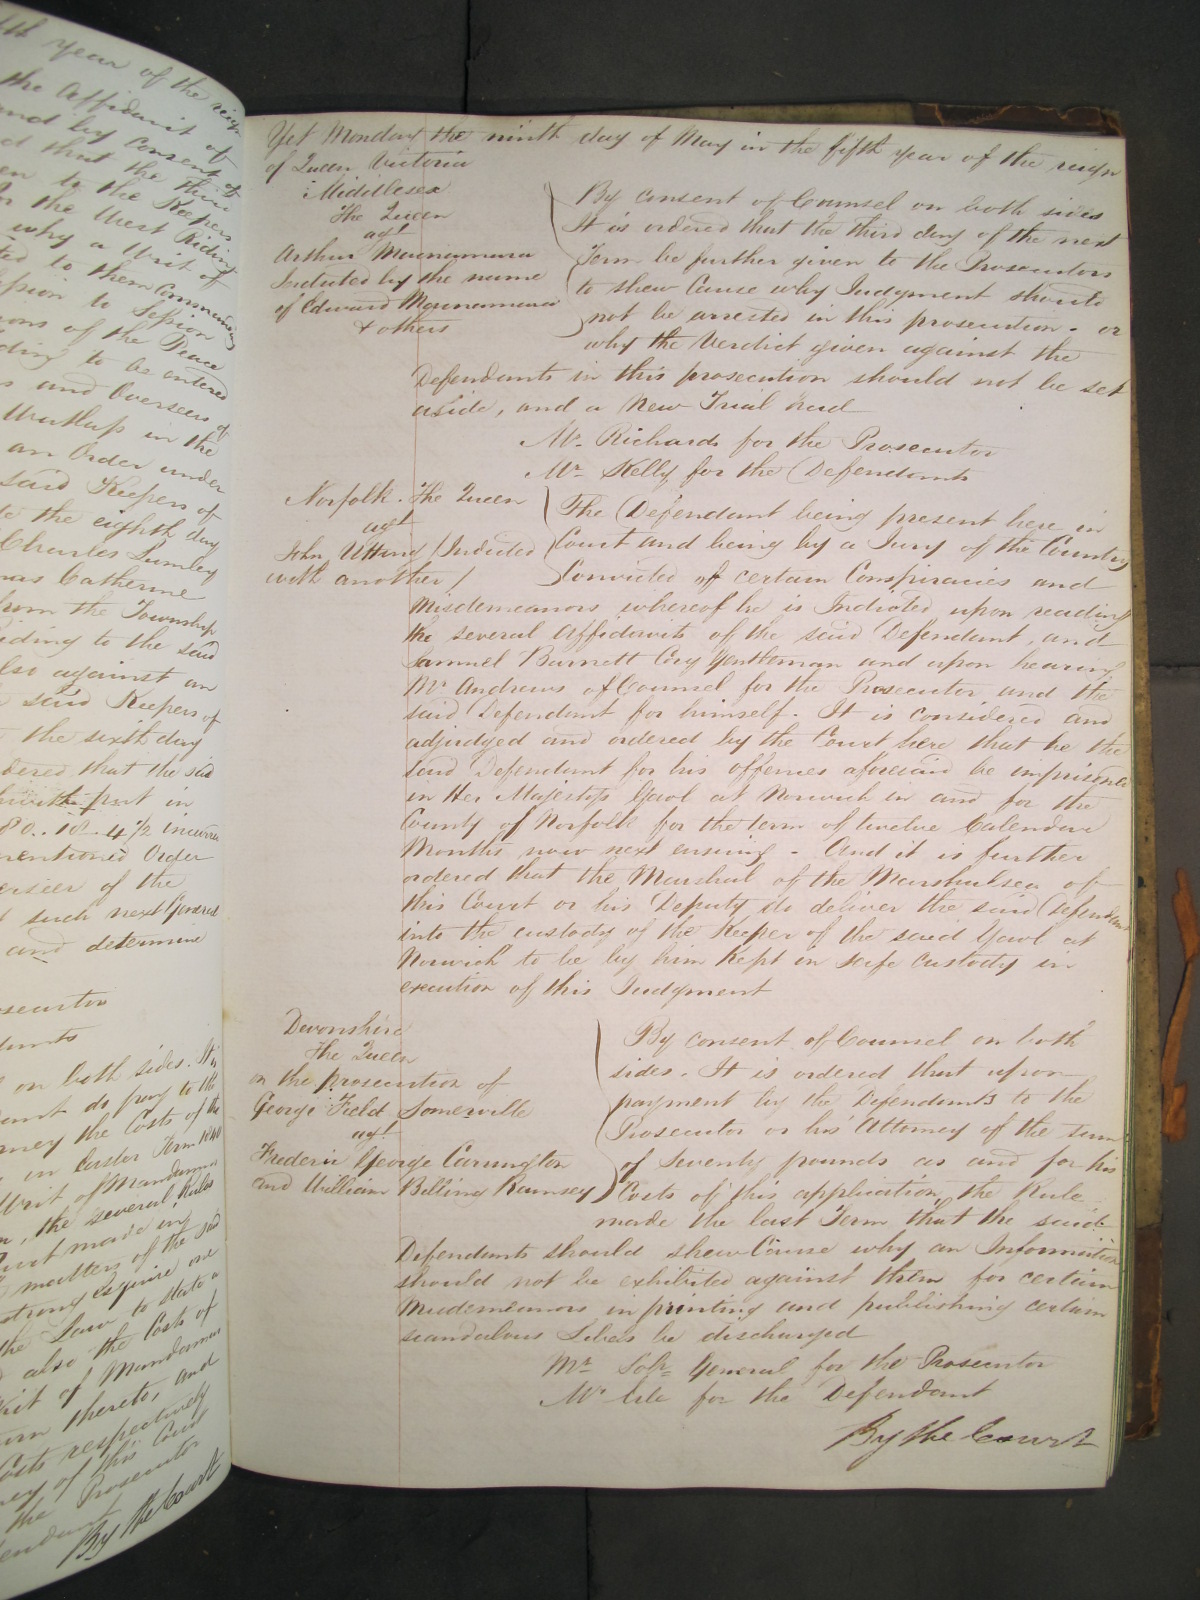 Yet Monday the ninth day of May in the fifth year of the reign
of Queen Victoria
Middlesex
The Queen
agt
Arthur Macnamara
Indicted by the name
of Edward Macnamara
& others
By consent of Counsel on both sides
It is ordered that the third day of the next
Term be further given to the Prosecutors
to shew Cause why Judgment should
not be arrested in this prosecution - or
why the Verdict given against the
Defendants in this prosecution should not be set
aside, and a New Trial had
Mr. Richards for the Prosecutor
Mr. Kelly for the Defendants
Norfolk. The Queen
agt
John Utting (Indicted
with another)
The Defendant being present here in
Court and being by a Jury of the Country
Convicted of certain Conspiracies and
Misdemeanors whereof he is Indicted upon reading
the several Affidavits of the said Defendant, and
Samuel Burnett Cory Gentleman and upon hearing
Mr Andrews of Counsel for the Prosecutor and the
said Defendant for himself. It is considered and
adjudged and ordered by the Court here that he the
said Defendant for his offences aforesaid be imprisoned
in Her Majestys Gaol at Norwich in and for the
County of Norfolk for the term of twelve Calendar
Months now next ensuing - And it is further
ordered that the Marshal of the Marshalsea of
this Court or his Deputy do deliver the said Defendant
into the custody of the Keeper of the said Gaol at
Norwich to be by him Kept in safe custody in
execution of this Judgment
Devonshire
The Queen
on the prosecution of
George Field Somerville
agt
Frederic George Carrington
and William Billing Ramsey
By consent of Counsel on both
sides. It is ordered that upon
payment by the Defendants to the
Prosecutor or his Attorney of the sum
of Seventy pounds as and for his
Costs of this application, the Rule
made the last Term that the said
Defendants should shew Cause why an Information
should not be exhibited against them for certain
Misdemeanors in printing and publishing certain
scandalous Libels be discharged
Mr Solr General for the Prosecutor
for the Defendant
By the Court
year of the reign
the Affidavit of
and by Consent of
that the third
to the Keepers
the West Riding
why a Writ of
to them Commanding
Session to Session
of the Peace
to be entered
and Overseers of
in the
an Order under
said Keepers of
the eighth day
Charles Lumley
Catherine
from the Township
Riding to the said
also against an
said Keepers of
the sixth day
ordered that the said
part in
80..18.4½ incurred
mentioned Order
of the
such next General
and determine
on both sides. It is
do pay to the
the Costs of the
in Easter Term 1840
Writ of Mandamus
the several Rules
made in
matters of the said
Esquire one
the Law to state a
also the Costs of
Writ of Mandamus
thereto, and
Costs respectively
of this Court
the Prosecutor
By the Court